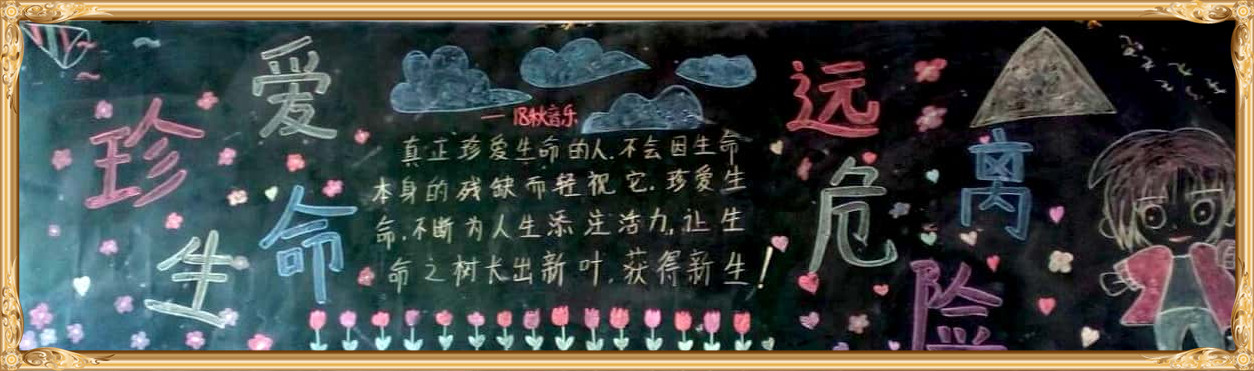 珍爱生命
远离危险
— 18秋音乐
真正珍爱生命的人.不会因生命
本身的残缺而轻视它.珍爱生
命.不断为人生添注活力,让生
命之树长出新叶,获得新生!